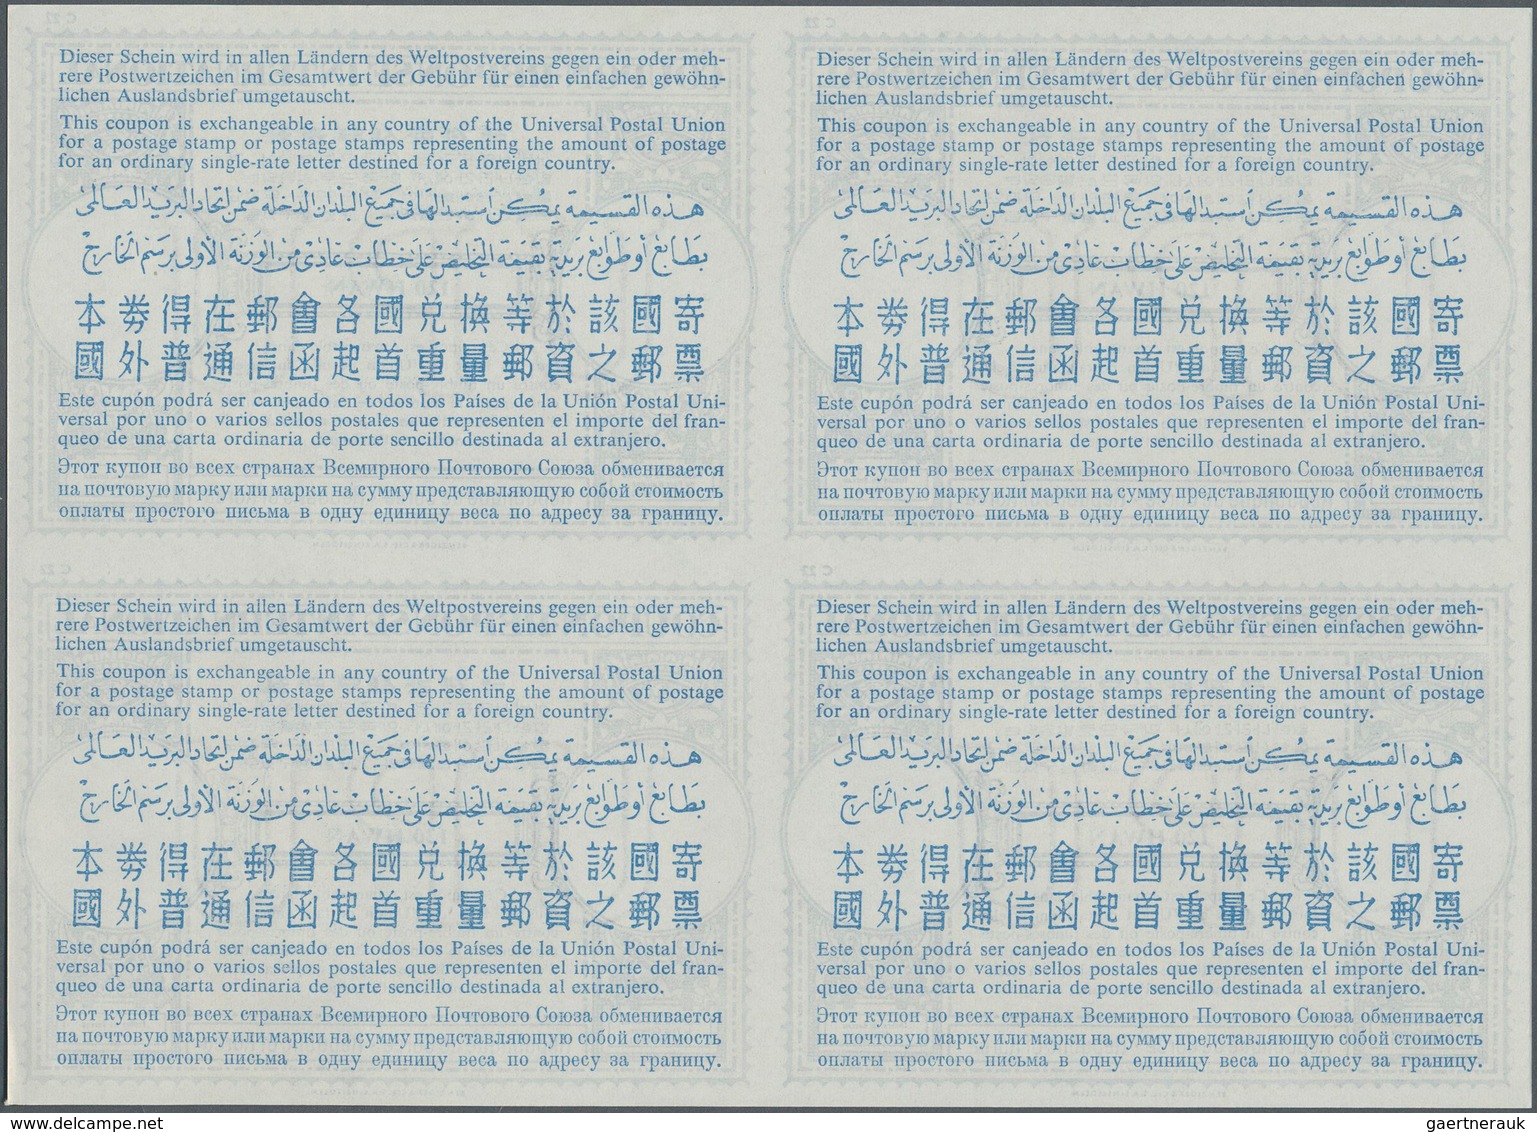 Dieser Schein wird in allen Ländern des Weltpostvereins gegen ein oder meh-
rere Postwertzeichen im Gesamtwert der Gebühr für einen einfachen gewöhn-
lichen Auslandsbrief umgetauscht.
This coupon is exchangeable in any country of the Universal Postal Union
for a postage stamp or postage stamps representing the amount of postage
for an ordinary single-rate letter destined for a foreign country.
هذه القسيمة يمكن استبدالها في جميع البلدان الداخلة ضمن اتحاد البريد العالمى
بطابع أو طوابع بريدية بقيمة التخليص على خطاب عادى من الوزنة الأولى برسم الخارج
本券得在郵會各國兌換等於該國寄
國外普通信函起首重量郵資之郵票
Este cupón podrá ser canjeado en todos los Países de la Unión Postal Uni-
versal por uno o varios sellos postales que representen el importe del fran-
queo de una carta ordinaria de porte sencillo destinada al extranjero.
Этот купон во всех странах Всемирного Почтового Союза обменивается
на почтовую марку или марки на сумму представляющую собой стоимость
оплаты простого письма в одну единицу веса по адресу за границу.
Dieser Schein wird in allen Ländern des Weltpostvereins gegen ein oder meh-
rere Postwertzeichen im Gesamtwert der Gebühr für einen einfachen gewöhn-
lichen Auslandsbrief umgetauscht.
This coupon is exchangeable in any country of the Universal Postal Union
for a postage stamp or postage stamps representing the amount of postage
for an ordinary single-rate letter destined for a foreign country.
هذه القسيمة يمكن استبدالها في جميع البلدان الداخلة ضمن اتحاد البريد العالمى
بطابع أو طوابع بريدية بقيمة التخليص على خطاب عادى من الوزنة الأولى برسم الخارج
本券得在郵會各國兌換等於該國寄
國外普通信函起首重量郵資之郵票
Este cupón podrá ser canjeado en todos los Países de la Unión Postal Uni-
versal por uno o varios sellos postales que representen el importe del fran-
queo de una carta ordinaria de porte sencillo destinada al extranjero.
Этот купон во всех странах Всемирного Почтового Союза обменивается
на почтовую марку или марки на сумму представляющую собой стоимость
оплаты простого письма в одну единицу веса по адресу за границу.
Dieser Schein wird in allen Ländern des Weltpostvereins gegen ein oder meh-
rere Postwertzeichen im Gesamtwert der Gebühr für einen einfachen gewöhn-
lichen Auslandsbrief umgetauscht.
This coupon is exchangeable in any country of the Universal Postal Union
for a postage stamp or postage stamps representing the amount of postage
for an ordinary single-rate letter destined for a foreign country.
هذه القسيمة يمكن استبدالها في جميع البلدان الداخلة ضمن اتحاد البريد العالمى
بطابع أو طوابع بريدية بقيمة التخليص على خطاب عادى من الوزنة الأولى برسم الخارج
本券得在郵會各國兌換等於該國寄
國外普通信函起首重量郵資之郵票
Este cupón podrá ser canjeado en todos los Países de la Unión Postal Uni-
versal por uno o varios sellos postales que representen el importe del fran-
queo de una carta ordinaria de porte sencillo destinada al extranjero.
Этот купон во всех странах Всемирного Почтового Союза обменивается
на почтовую марку или марки на сумму представляющую собой стоимость
оплаты простого письма в одну единицу веса по адресу за границу.
Dieser Schein wird in allen Ländern des Weltpostvereins gegen ein oder meh-
rere Postwertzeichen im Gesamtwert der Gebühr für einen einfachen gewöhn-
lichen Auslandsbrief umgetauscht.
This coupon is exchangeable in any country of the Universal Postal Union
for a postage stamp or postage stamps representing the amount of postage
for an ordinary single-rate letter destined for a foreign country.
هذه القسيمة يمكن استبدالها في جميع البلدان الداخلة ضمن اتحاد البريد العالمى
بطابع أو طوابع بريدية بقيمة التخليص على خطاب عادى من الوزنة الأولى برسم الخارج
本券得在郵會各國兌換等於該國寄
國外普通信函起首重量郵資之郵票
Este cupón podrá ser canjeado en todos los Países de la Unión Postal Uni-
versal por uno o varios sellos postales que representen el importe del fran-
queo de una carta ordinaria de porte sencillo destinada al extranjero.
Этот купон во всех странах Всемирного Почтового Союза обменивается
на почтовую марку или марки на сумму представляющую собой стоимость
оплаты простого письма в одну единицу веса по адресу за границу.
delcampe.net
gaertnerauk